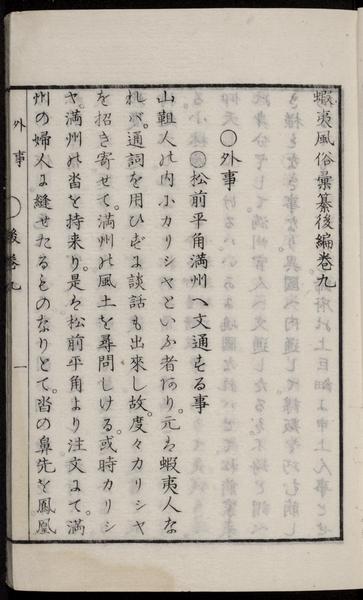 蝦夷風俗彙纂後編巻九
〇外事
〇松前平角満州へ文通する事
山靼人の内にカリシヤといふ者あり元は蝦夷人な
れバ。通詞を用ひずに談話も出來し故。度々カリシヤ
を招き寄せて。満州の風土を尋問しける。或時カリシ
ヤ。満州の沓を持来り。是は松前平角より注文にて。満
州の婦人に縫せたるものなりとて。沓の鼻先を鳳凰
外事 〇 後巻九 一